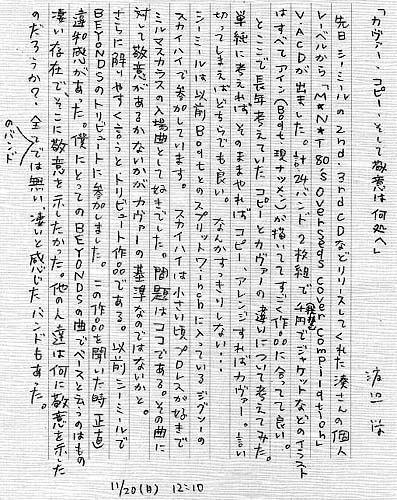 「カヴァー、コピー、そして敬意は何処へ」
渡辺 洋
先日シーミールの2nd、3rd CDなどリリースしてくれた湊さんの個人
レーベルから「M*N*T 80's Overseas Cover Compilation」
V.A CDが出ました。計24バンド2枚組で千円でジャケットなどのイラスト
はすべてアイン(Bogt、現ナツメン)が描いててすごく作品に合ってて良い。
とここで長年考えていたコピーとカヴァーの違いについて考えてみた。
単純に考えれば、そのままやればコピー、アレンジすればカヴァー。言い
切ってしまえばどちらでも良い。なんかすっきりしない…
シーミールは以前BogtとのスプリットDinchに入っているジグソーの
スカイハイで参加しています。スカイハイは小さい頃プロレスが好きで
ミルマスカラスの入場曲として好きでした。問題はココである。その曲に
対して敬意があるかないかがカヴァーの基準なのではないかと。
さらに解りやすく言うとトリビュート作品である。以前シーミールで
BEYONDSのトリビュートに参加しました。この作品を聞いた時正直
違和感があった。僕にとってのBEYONDSの曲でベースと云うのはもの
凄い存在で、そこに敬意を示したかった。他の人達は何に敬意を示した
のだろうか?全てのバンドでは無い、凄いと感じたバンドもあった。
11/20(日) 12:10